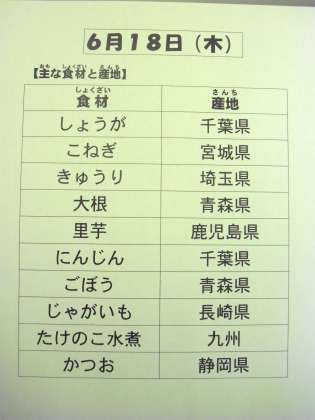 6月18日（木）
【主な食材と産地】
食材 産地
しょうが 千葉県
こねぎ 宮城県
きゅうり 埼玉県
大根 青森県
里芋 鹿児島県
にんじん 千葉県
ごぼう 青森県
じゃがいも 長崎県
たけのこ水煮 九州
かつお 静岡県